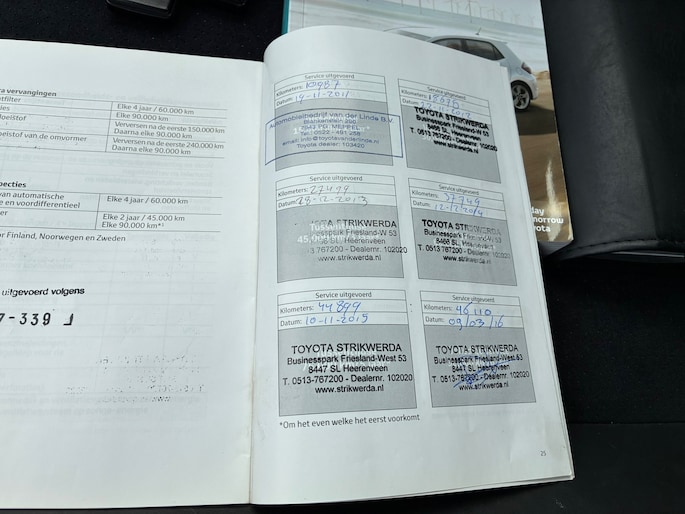 ra vervangingen
Elke 4 jaar / 60.000 km
Elke 90.000 km
Verversen na de eerste 150.000 km
Daarna elke 90.000 km
oelstof van de omvormer
Verversen na de eerste 240.000 km
Daarna elke 90.000 km
pecties
van automatische
e en voordifferentieel
Elke 4 jaar / 60.000 km
Elke 2 jaar / 45.000 km
Elke 90.000 km*¹
or Finland, Noorwegen en Zweden
uitgevoerd volgens
7-339
Service uitgevoerd
Kilometers: 10987
Datum: 14-11-2011
Automobielbedrijf van der Linde B.V.
Blankenstein 250
7943 PG MEPPEL
Toyota dealer: 103420
Service uitgevoerd
Kilometers:
Datum:
TOYOTA STRIKWERDA
Businesspark Friesland-W 53
8466 SL Heerenveen
www.strikwerda.nl
Service uitgevoerd
Kilometers: 27499
Datum: 28-12-2013
TOYOTA STRIKWERDA
Businesspark Friesland-W 53
SL Heerenveen
767200 - Dealernr. 102020
www.strikwerda.nl
Service uitgevoerd
Kilometers: 37749
Datum: 12-12-2014
TOYOTA STRIKWERDA
Businesspark Friesland-W 53
8466 SL Heerenveen
T. 0513-767200 - Dealernr. 102020
www.strikwerda.nl
Service uitgevoerd
Kilometers: 44899
Datum: 10-11-2015
TOYOTA STRIKWERDA
Businesspark Friesland-West 53
8447 SL Heerenveen
T. 0513-767200 - Dealernr. 102020
www.strikwerda.nl
Service uitgevoerd
Kilometers: 46110
Datum: 09/03/16
TOYOTA STRIKWERDA
Businesspark Friesland-West 53
8447 SL Heerenveen
T. 0513-767200 - Dealernr. 102020
www.strikwerda.nl
*Om het even welke het eerst voorkomt
25
day
morrow
yota